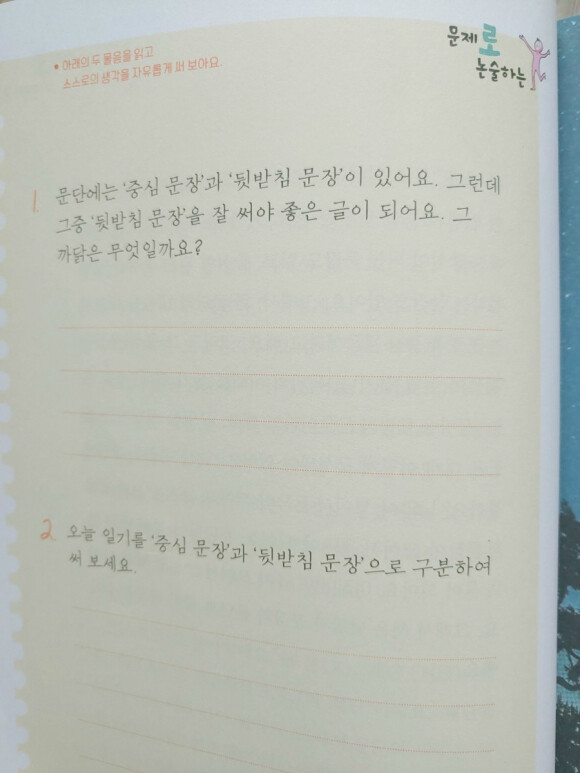 문제로
논술하는
• 아래의 두 물음을 읽고
스스로의 생각을 자유롭게 써 보아요.
1 문단에는 ‘중심 문장’과 ‘뒷받침 문장’이 있어요. 그런데
그중 ‘뒷받침 문장’을 잘 써야 좋은 글이 되어요. 그
까닭은 무엇일까요?
2. 오늘 일기를 ‘중심 문장’과 ‘뒷받침 문장’으로 구분하여
써 보세요.